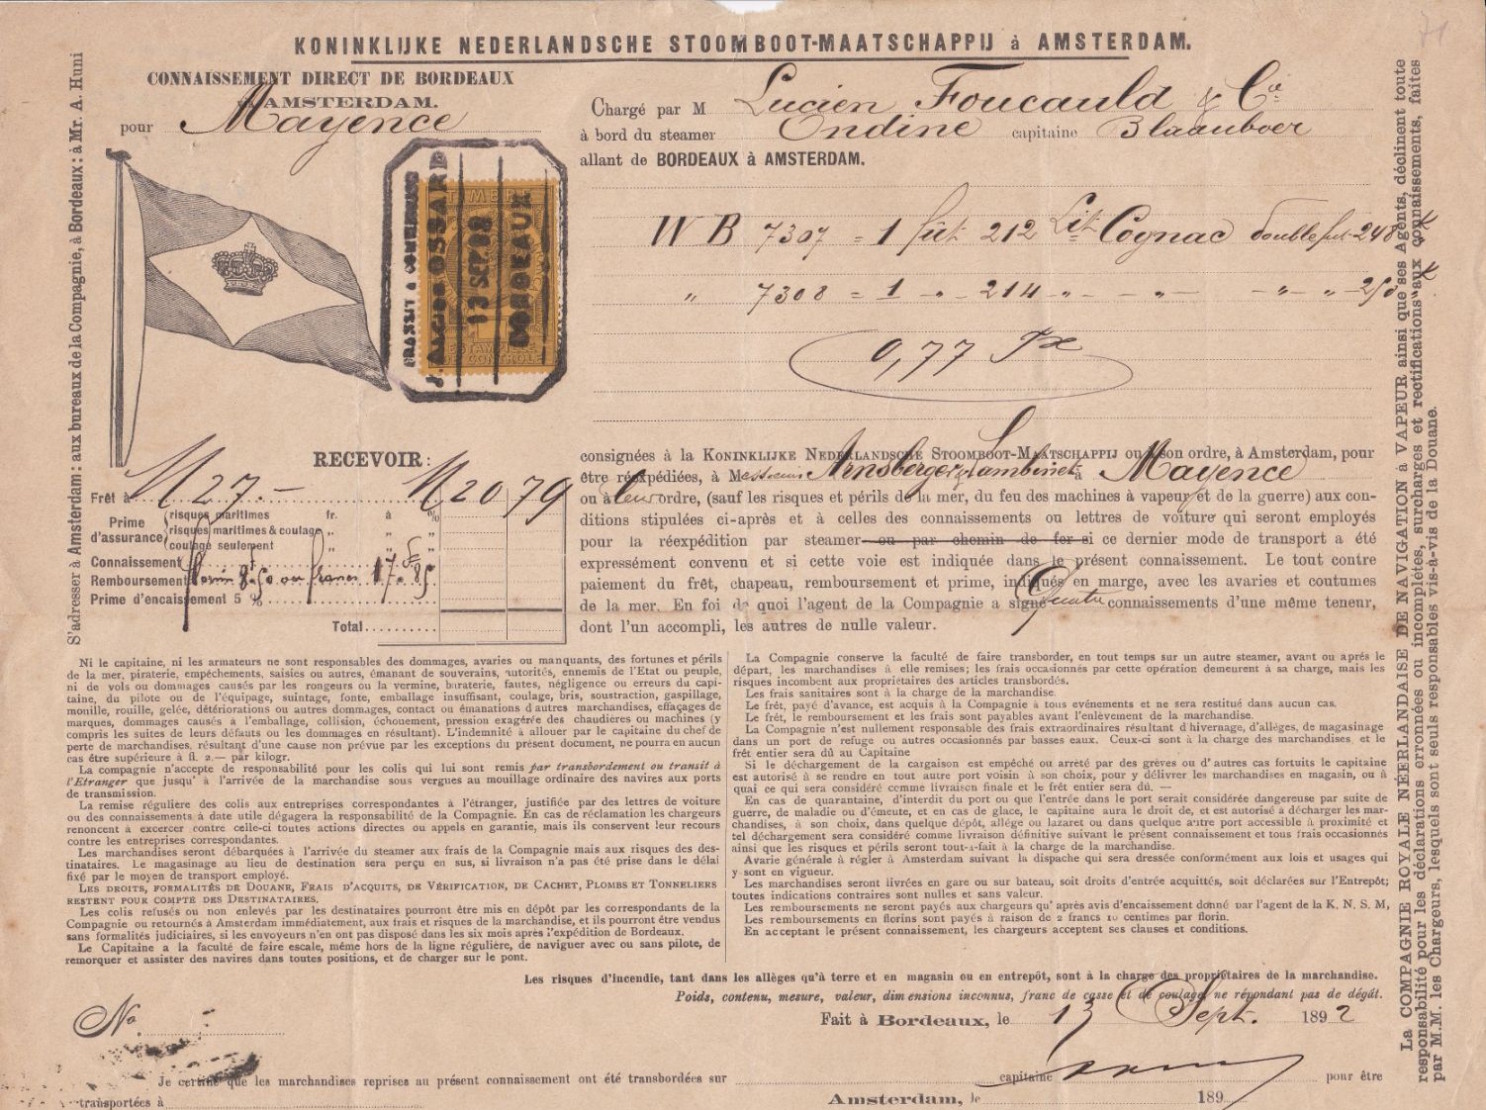 KONINKLIJKE NEDERLANDSCHE STOOMBOOT-MAATSCHAPPIJ à AMSTERDAM.
CONNAISSEMENT DIRECT DE BORDEAUX
à AMSTERDAM.
pour Mayence
Chargé par M Lucien Foucauld & Cie
à bord du steamer Ondine capitaine Blaauboer
allant de BORDEAUX à AMSTERDAM.
TRANSIT & COMMISSION
J. ALCIDE OSSARD
13 SEP. 98
BORDEAUX
W B 7307 = 1 fût 212 Lit. Cognac double fut 248 K
" 7308 = 1 -"- 214 "- -"- -"- " 250 K
0,77 Tx
RECEVOIR:
Frêt à M 27.- M 20 79
Prime d'assurance
risques maritimes fr. à %
risques maritimes & coulage " " "
coulage seulement " " "
Connaissement
Remboursement florin 8.50 ou francs 17.85
Prime d'encaissement 5 %
Total
consignées à la KONINKLIJKE NEDERLANDSCHE STOOMBOOT-MAATSCHAPPIJ ou son ordre, à Amsterdam, pour
être réexpédiées, à Messieurs Arnsberger & Lambinet à Mayence
ou à leur ordre, (sauf les risques et périls de la mer, du feu des machines à vapeur et de la guerre) aux con-
ditions stipulées ci-après et à celles des connaissements ou lettres de voiture qui seront employés
pour la réexpédition par steamer ou par chemin de fer si ce dernier mode de transport a été
expressément convenu et si cette voie est indiquée dans le présent connaissement. Le tout contre
paiement du frêt, chapeau, remboursement et prime, indiqués en marge, avec les avaries et coutumes
de la mer. En foi de quoi l'agent de la Compagnie a signé Quatre connaissements d'une même teneur,
dont l'un accompli, les autres de nulle valeur.
Ni le capitaine, ni les armateurs ne sont responsables des dommages, avaries ou manquants, des fortunes et périls
de la mer, piraterie, empêchements, saisies ou autres, émanant de souverains, autorités, ennemis de l'Etat ou peuple,
ni de vols ou dommages causés par les rongeurs ou la vermine, baraterie, fautes, négligence ou erreurs du capi-
taine, du pilote ou de l'équipage, suintage, fonte, emballage insuffisant, coulage, bris, soustraction, gaspillage,
mouille, rouille, gelée, détériorations ou autres dommages, contact ou émanations d'autres marchandises, effaçages de
marques, dommages causés à l'emballage, collision, échouement, pression exagérée des chaudières ou machines (y
compris les suites de leurs défauts ou les dommages en résultant). L'indemnité à allouer par le capitaine du chef de
perte de marchandises, résultant d'une cause non prévue par les exceptions du présent document, ne pourra en aucun
cas être supérieure à fl. 2.— par kilogr.
La compagnie n'accepte de responsabilité pour les colis qui lui sont remis par transbordement ou transit à
l'Etranger que jusqu' à l'arrivée de la marchandise sous vergues au mouillage ordinaire des navires aux ports
de transmission.
La remise régulière des colis aux entreprises correspondantes à l'étranger, justifiée par des lettres de voiture
ou des connaissements à date utile dégagera la responsabilité de la Compagnie. En cas de réclamation les chargeurs
renoncent à excercer contre celle-ci toutes actions directes ou appels en garantie, mais ils conservent leur recours
contre les entreprises correspondantes.
Les marchandises seront débarquées à l'arrivée du steamer aux frais de la Compagnie mais aux risques des des-
tinataires. Le magasinage au lieu de destination sera perçu en sus, si livraison n'a pas été prise dans le délai
fixé par le moyen de transport employé.
LES DROITS, FORMALITÉS DE DOUANE, FRAIS D'ACQUITS, DE VÉRIFICATION, DE CACHET, PLOMBS ET TONNELIERS
RESTENT POUR COMPTE DES DESTINATAIRES.
Les colis refusés ou non enlevés par les destinataires pourront être mis en dépôt par les correspondants de la
Compagnie ou retournés à Amsterdam immédiatement, aux frais et risques de la marchandise, et ils pourront être vendus
sans formalités judiciaires, si les envoyeurs n'en ont pas disposé dans les six mois après l'expédition de Bordeaux.
Le Capitaine a la faculté de faire escale, même hors de la ligne régulière, de naviguer avec ou sans pilote, de
remorquer et assister des navires dans toutes positions, et de charger sur le pont.
La Compagnie conserve la faculté de faire transborder, en tout temps sur un autre steamer, avant ou après le
départ, les marchandises à elle remises; les frais occasionnés par cette opération demeurent à sa charge, mais les
risques incombent aux propriétaires des articles transbordés.
Les frais sanitaires sont à la charge de la marchandise.
Le frêt, payé d'avance, est acquis à la Compagnie à tous évènements et ne sera restitué dans aucun cas.
Le frêt, le remboursement et les frais sont payables avant l'enlèvement de la marchandise.
La Compagnie n'est nullement responsable des frais extraordinaires résultant d'hivernage, d'allèges, de magasinage
dans un port de refuge ou autres occasionnés par basses eaux. Ceux-ci sont à la charge des marchandises et le
frêt entier sera dû au Capitaine
Si le déchargement de la cargaison est empêché ou arrêté par des grèves ou d' autres cas fortuits le capitaine
est autorisé à se rendre en tout autre port voisin à son choix, pour y délivrer les marchandises en magasin, ou à
quai ce qui sera considéré comme livraison finale et le frêt entier sera dû. —
En cas de quarantaine, d'interdit du port ou que l'entrée dans le port serait considérée dangereuse par suite de
guerre, de maladie ou d'émeute, et en cas de glace, le capitaine aura le droit de, et est autorisé à décharger les mar-
chandises, à son choix, dans quelque dépôt, allége ou lazaret ou dans quelque autre port accessible à proximité et
tel déchargement sera considéré comme livraison définitive suivant le présent connaissement et tous frais occasionnés
ainsi que les risques et périls seront tout-à-fait à la charge de la marchandise.
Avarie générale à régler à Amsterdam suivant la dispache qui sera dressée conformément aux lois et usages qui
y sont en vigueur.
Les marchandises seront livrées en gare ou sur bateau, soit droits d'entrée acquittés, soit déclarées sur l'Entrepôt;
toutes indications contraires sont nulles et sans valeur.
Les remboursements ne seront payés aux chargeurs qu' après avis d'encaissement donné par l'agent de la K. N. S. M,
Les remboursements en florins sont payés à raison de 2 francs 10 centimes par florin.
En acceptant le présent connaissement, les chargeurs acceptent ses clauses et conditions.
Les risques d'incendie, tant dans les allèges qu'à terre et en magasin ou en entrepôt, sont à la charge des propriétaires de la marchandise.
Poids, contenu, mesure, valeur, dimensions inconnus, franc de casse et de coulage, ne répondant pas de dégât.
Fait à Bordeaux, le 13 Sept. 1892
No.
Je certifie que les marchandises reprises au présent connaissement ont été transbordées sur
capitaine pour être
transportées à
Amsterdam, le 189
S'adresser à Amsterdam: aux bureaux de la Compagnie, à Bordeaux: à Mr. A. Huni
La COMPAGNIE ROYALE NÉERLANDAISE DE NAVIGATION à VAPEUR ainsi que ses Agents, déclinent toute
responsabilité pour les déclarations erronnées ou incomplètes, surcharges et rectifications aux connaissements, faites
par M.M. les Chargeurs, lesquels sont seuls responsables vis-à-vis de la Douane.